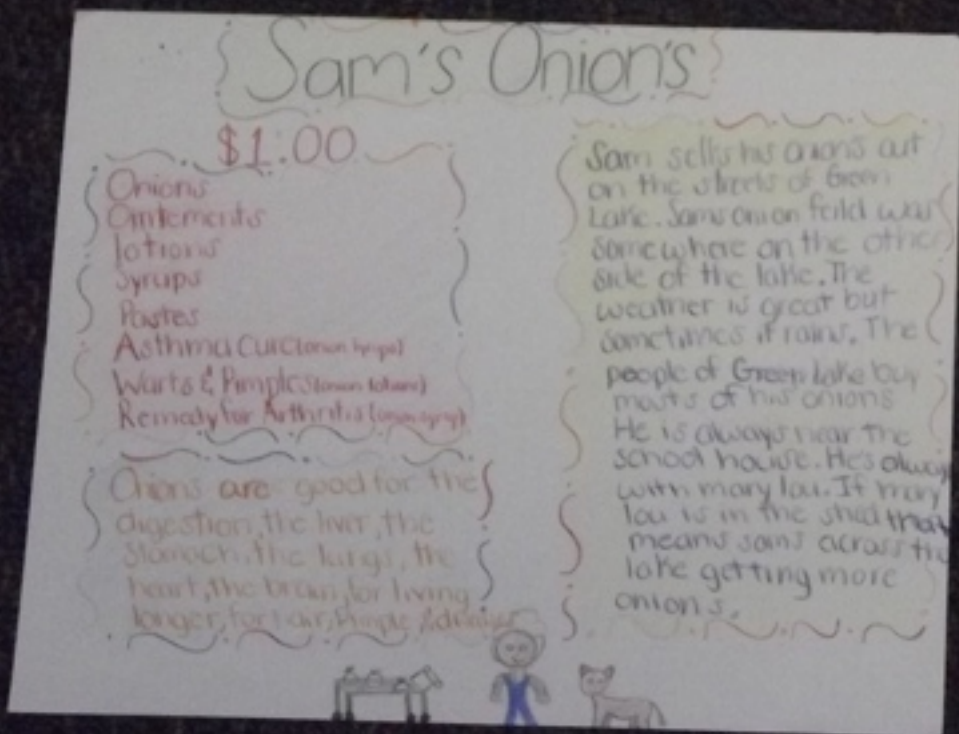 Sam's Onion's
$1.00
Onions
Ointements
lotions
Syrups
Pastes
Asthma cure (onion syrups)
Warts & Pimples (onion lotions)
Remedy for Arthritis (onion syrup)
Onions are good for the
digestion, the liver, the
stomach, the lungs, the
heart, the brain, for living
longer, for hair, Pimple &
Sam sells his onions out
on the streets of Green
Lake. Sams onion feild was
somewhere on the other
side of the lake. The
weather is great but
sometimes it rains. The
people of Green lake buy
mosts of his onions
He is always near the
school house. He's always
with mary lou. If mary
lou is in the shed that
means sams across the
lake getting more
onions.